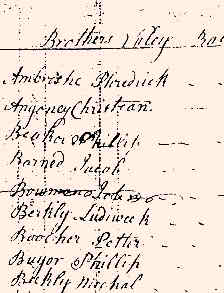 Brothers Valey
Ambroshe Phredrick
Angoney Christean
Beaker Phillip
Barned Jacob
Bowmans
Berkly Ludiweek
Boocher Petter
Buyor Phillip
Beekly Michal